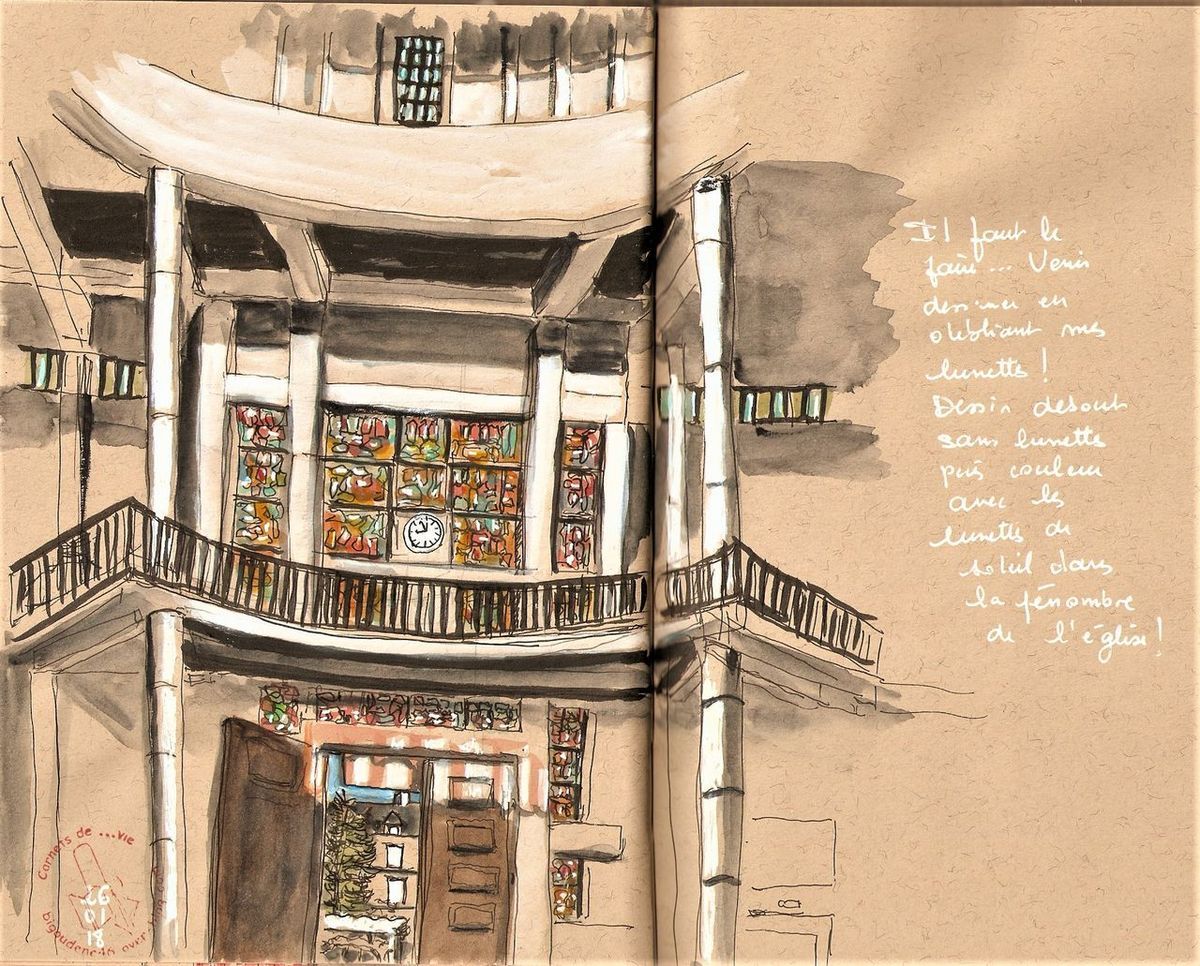 Il faut le
faire... Venir
dessiner en
oubliant mes
lunettes !
Dessin debout
sans lunettes
puis couleur
avec les
lunettes de
soleil dans
la pénombre
de l'église !
Carnets de ...vie
26
01
18